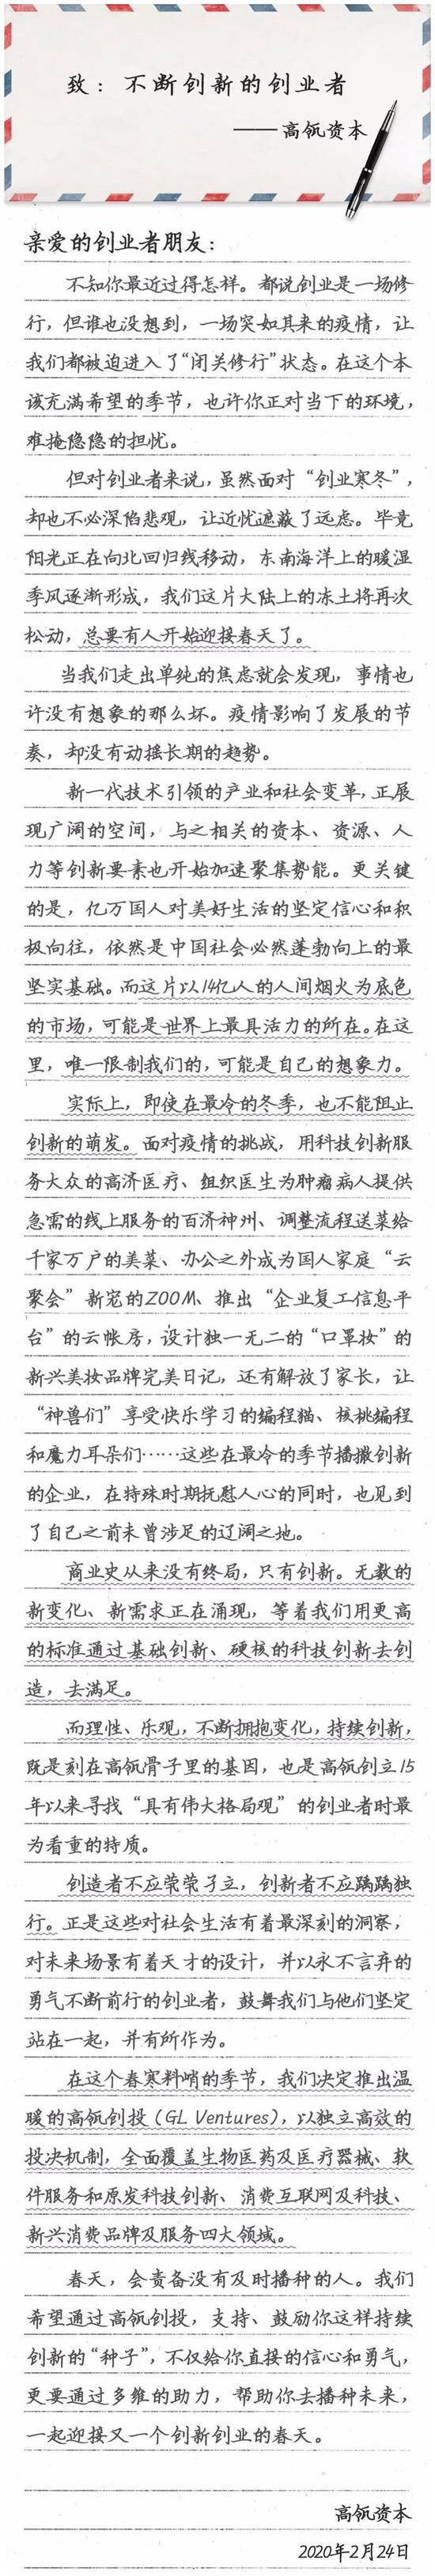 致：不断创新的创业者
——高瓴资本
亲爱的创业者朋友：
不知你最近过得怎样。都说创业是一场修
行，但谁也没想到，一场突如其来的疫情，让
我们都被迫进入了“闭关修行”状态。在这个本
该充满希望的季节，也许你正对当下的环境，
难掩隐隐的担忧。
但对创业者来说，虽然面对“创业寒冬”，
却也不必深陷悲观，让近忧遮蔽了远虑。毕竟
阳光正在向北回归线移动，东南海洋上的暖湿
季风逐渐形成，我们这片大陆上的冻土将再次
松动，总要有人开始迎接春天了。
当我们走出单纯的焦虑就会发现，事情也
许没有想象的那么坏。疫情影响了发展的节
奏，却没有动摇长期的趋势。
新一代技术引领的产业和社会变革，正展
现广阔的空间，与之相关的资本、资源、人
力等创新要素也开始加速聚集势能。更关键
的是，亿万国人对美好生活的坚定信心和积
极向往，依然是中国社会必然蓬勃向上的最
坚实基础。而这片以14亿人的人间烟火为底色
的市场，可能是世界上最具活力的所在。在这
里，唯一限制我们的，可能是自己的想象力。
实际上，即使在最冷的冬季，也不能阻止
创新的萌发。面对疫情的挑战，用科技创新服
务大众的高济医疗、组织医生为肿瘤病人提供
急需的线上服务的百济神州、调整流程送菜给
千家万户的美菜、办公之外成为国人家庭“云
聚会”新宠的ZOOM、推出“企业复工信息平
台”的云帐房，设计独一无二的“口罩妆”的
新兴美妆品牌完美日记，还有解放了家长，让
“神兽们”享受快乐学习的编程猫、核桃编程
和魔力耳朵们……这些在最冷的季节播撒创新
的企业，在特殊时期抚慰人心的同时，也见到
了自己之前未曾涉足的辽阔之地。
商业史从来没有终局，只有创新。无数的
新变化、新需求正在涌现，等着我们用更高
的标准通过基础创新、硬核的科技创新去创
造，去满足。
而理性、乐观，不断拥抱变化，持续创新，
既是刻在高瓴骨子里的基因，也是高瓴创立15
年以来寻找“具有伟大格局观”的创业者时最
为看重的特质。
创造者不应茕茕孑立，创新者不应踽踽独
行。正是这些对社会生活有着最深刻的洞察，
对未来场景有着天才的设计，并以永不言弃的
勇气不断前行的创业者，鼓舞我们与他们坚定
站在一起，并有所作为。
在这个春寒料峭的季节，我们决定推出温
暖的高瓴创投（GL Ventures），以独立高效的
投决机制，全面覆盖生物医药及医疗器械、软
件服务和原发科技创新、消费互联网及科技、
新兴消费品牌及服务四大领域。
春天，会责备没有及时播种的人。我们
希望通过高瓴创投，支持、鼓励你这样持续
创新的“种子”，不仅给你直接的信心和勇气，
更要通过多维的助力，帮助你去播种未来，
一起迎接又一个创新创业的春天。
高瓴资本
2020年2月24日